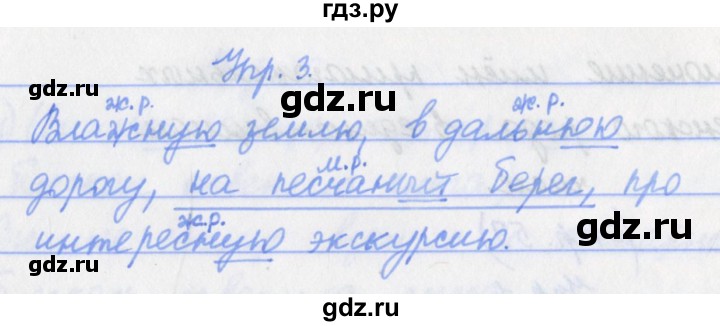 гдз.ру
Упр. 3.
gdz.ru gdz.ru
ж.р. ж.р.
Влажную землю, в дальнюю
м.р.
дорогу, на песчаный берег, про
ж.р.
интересную экскурсию.
gdz.ru gdz.ru
gdz.ru